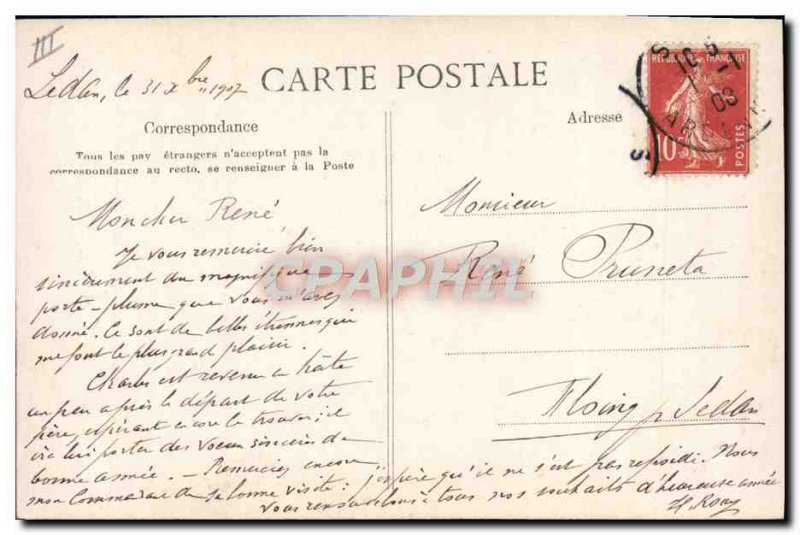 III
Sedan, le 31 Xbre 1907
CARTE POSTALE
Correspondance
Tous les pay étrangers n'acceptent pas la
correspondance au recto, se renseigner à la Poste
Adresse
REPUBLIQUE FRANÇAISE
10
POSTES
Mon cher René
Je vous remercie bien
sincèrement du magnifique
porte-plume que vous m'avez
donné. Ce sont de belles étrennes qui
me font le plus grand plaisir.
Charles est revenu en hâte
un peu après le départ de votre
père, espérant encore le trouver; il
ira lui porter des voeux sincères de
bonne année. - Remerciez encore
mon Commandant de sa bonne visite: j'espère qu'il ne s'est pas refroidi. Nous
vous renouvelons à tous nos souhaits d'heureuse année
Monsieur
René Pruneta
Floing p Sedan
CPAPHIL